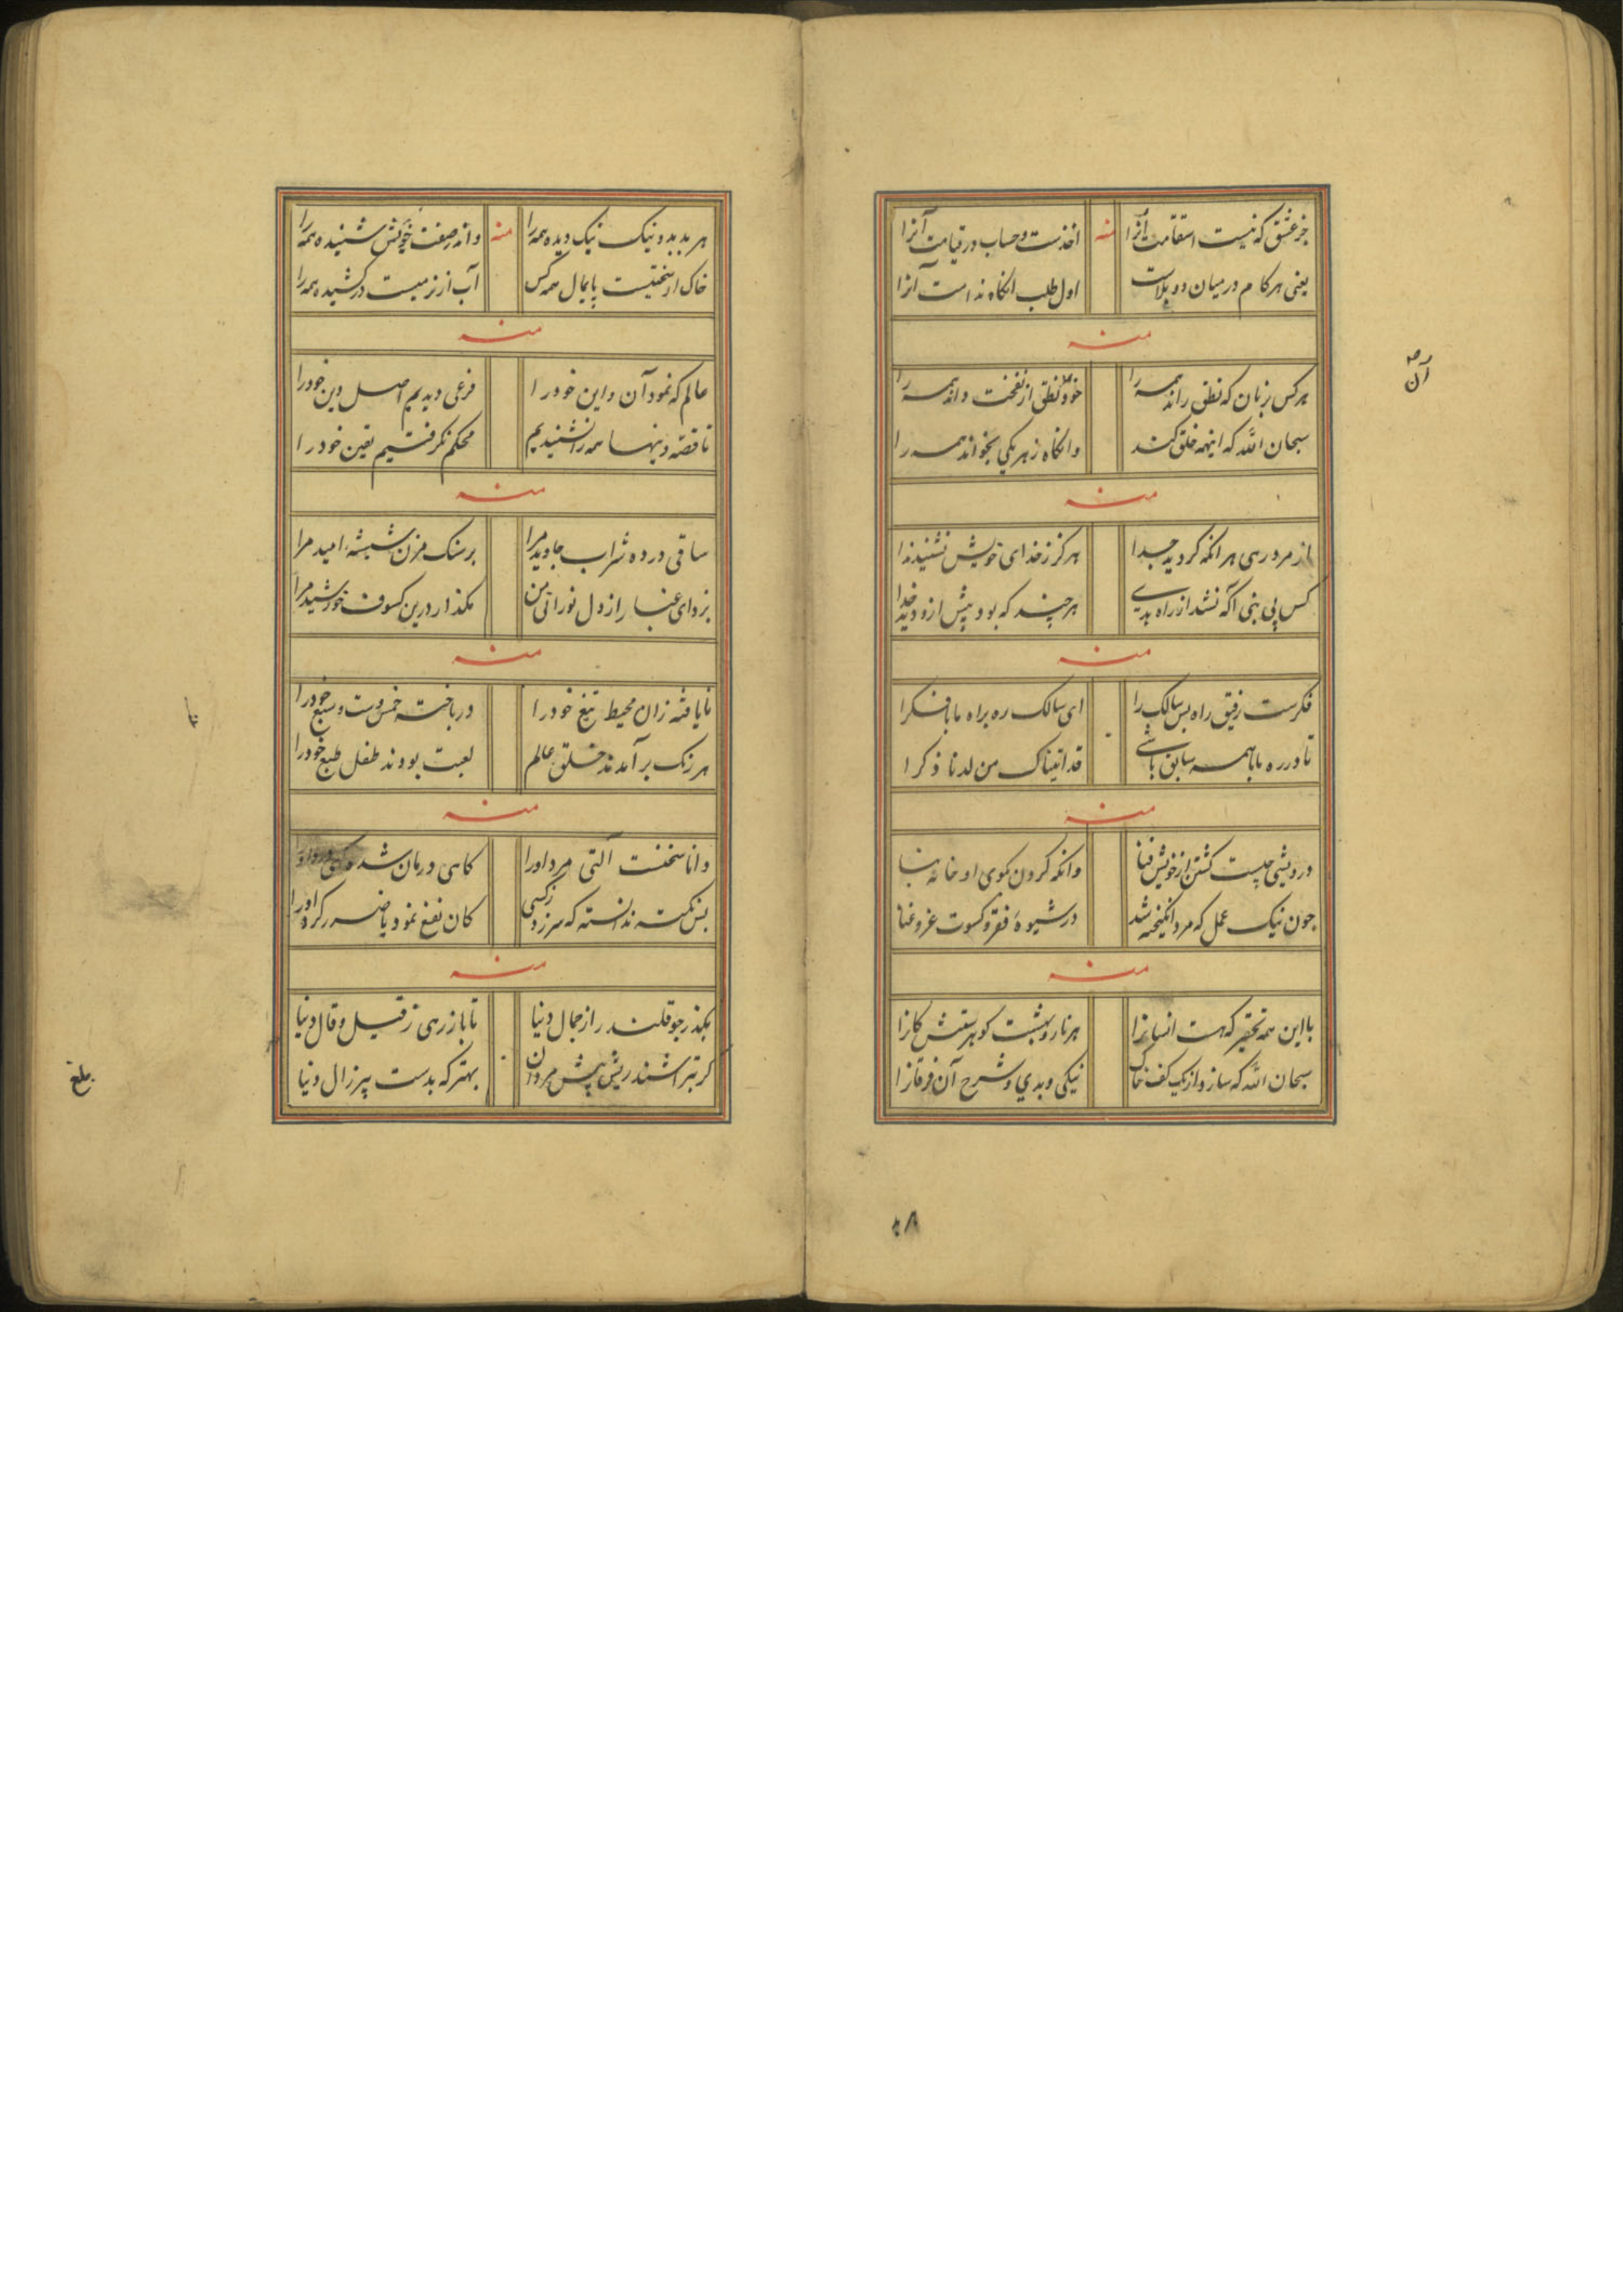 جز عشق که نیست استقامت آنرا منه اخذست و حساب در قیامت آنرا
یعنی هر کام در میان دو بلاست اول طلب انکاه ندامت آنرا
منه
هر کس بزبان که نطق راند همه را خود نطق از نفخت داند همه را
سبحان الله که اینهمه خلق کند وانکاه ز هر یکی بخواند همه را
منه
از مرد رهی هر انکه کردید جدا هرکز ز خدای خویش نشنید ندا
کس پی بنی اکه نشد از راه بدی هر چند که بود پیش ازو دید خدا
منه
فکرست رفیق راه بس سالک را ای سالک ره براه ما با فکرا
تا در ره ما با همه سابق باشی قد اتیناک من لدنا ذکرا
منه
درویشی چیست کشتن از خویش فنا وانکه کردن بکوی او خانه بنا
چون نیک عمل که مرد انکیخته شد در شیوهٔ فقر و کسوت عز و غنا
منه
با این همه تحقیر که هست انسانرا هر نار و بهشت کوهرستش کانرا
سبحان الله که سازد از یک کف خاک نیکی و بدی و شرح آن فرقانرا
صه
آن
۴۸
هر بد بد و نیک نیک دیده همه را منه وانه صفت خویش شنیده همه را
خاک ار سختیست پایمال همه کس آب از نرمیست در کشیده همه را
منه
عالم که نمود آن و این خود را فرعی دیدیم اصل دین خود را
تا قصه دینها همه را نشنیدیم محکم نکرفتیم یقین خود را
منه
ساقی در ده شراب جاوید مرا بر سنک مزن شیشهٔ امید مرا
بزدای غبار از دل نورانی من مکذار درین کسوف خورشید مرا
منه
نایافته زان محیط تیغ خود را در باخته خمس و ست و سبع خود را
هر رنک بر آمدند خلق عالم لعبت بودند طفل طبع خود را
منه
دانا سخنست آلتی مرد او را کاهی درمان شد و کهی درد او را
بس نکته ندانسته که سر زد ز کسی کان نفع نمود یا ضرر کرد او را
منه
بکذر جو قلندر از جمال دنیا تا باز رهی ز قیل و قال دنیا
کر بتراشند ریش پیش مردان بهتر که بدست پیر زال دنیا
بلغ